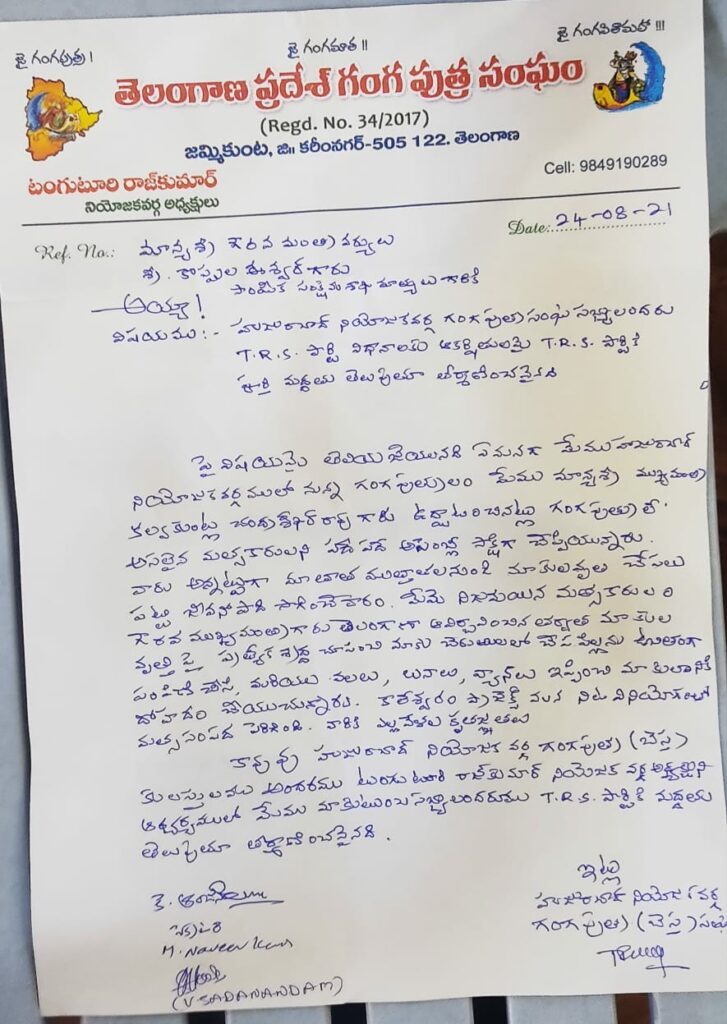 జై గంగపుత్ర !
జై గంగమాత !!
జై గంగపితామహా !!!
తెలంగాణ ప్రదేశ్ గంగ పుత్ర సంఘం
(Regd. No. 34/2017)
జమ్మికుంట, జి॥ కరీంనగర్-505 122. తెలంగాణ
టంగుటూరి రాజ్‌కుమార్
నియోజకవర్గ అధ్యక్షులు
Cell: 9849190289
Date: 24-08-21
Ref. No.: మాన్యశ్రీ గౌరవ మంత్రి వర్యులు
శ్రీ. కొప్పుల ఈశ్వర్ గారు
సంక్షేమ శాఖ గారికి
అయ్యా !
విషయము :- హుజురాబాద్ నియోజకవర్గ గంగపుత్ర సంఘ సభ్యులందరు
T.R.S. పార్టీ విధానాలకు ఆకర్షితులమై T.R.S. పార్టీకి
మద్దతు తెలుపుతూ తీర్మాణించనైనది
పై విషయమై తెలియజేయునది ఏమనగా మేము హుజురాబాద్
నియోజకవర్గములో నున్న గంగపుత్రులం మేము మాన్యశ్రీ ముఖ్యమంత్రి
కల్వకుంట్ల చంద్రశేఖర్ రావు గారు ఉద్ఘాటించినట్లు గంగపుత్రులే
అసలైన మత్స్యకారులని పదే పదే అసెంబ్లీ సాక్షిగా చెప్పియున్నారు.
వారు అన్నట్టుగా మా తాత ముత్తాతలనుండి మా కులవృత్తి చేపలు
పట్టి జీవనోపాధి సాగించేవారం. మేమే నిజమయిన మత్స్యకారులం
గౌరవ ముఖ్యమంత్రి గారు తెలంగాణ ఆవిర్భవించిన తర్వాత మా కుల
వృత్తి పై ప్రత్యేక శ్రద్ధ చూపించి మాకు చెరువులలో చేప పిల్లను ఉచితంగా
పంపిణి చేసి, మరియు వలలు, లునాలు, వ్యాన్‌లు ఇప్పించి మా కులానికి
దోహదం చేయుచున్నారు. కాళేశ్వరం ప్రాజెక్ట్ వలన నీటి వినియోగంలో
మత్స్యసంపద పెరిగింది. వారికి ఎల్లవేళల కృతజ్ఞతలు
కావున హుజురాబాద్ నియోజక వర్గ గంగపుత్ర (బెస్త)
కులస్తులము అందరము టంగుటూరి రాజ్‌కుమార్ నియోజక వర్గ అధ్యక్షుని
ఆధ్వర్యములో మేము మా కుటుంబ సభ్యులందరుము T.R.S. పార్టీకి మద్దతు
తెలుపుతూ తీర్మాణించనైనది.
ఇట్లు
హుజురాబాద్ నియోజకవర్గ
గంగపుత్ర (బెస్త)
కె.
M. Naveen Kumar
(V. SADANANDAM)